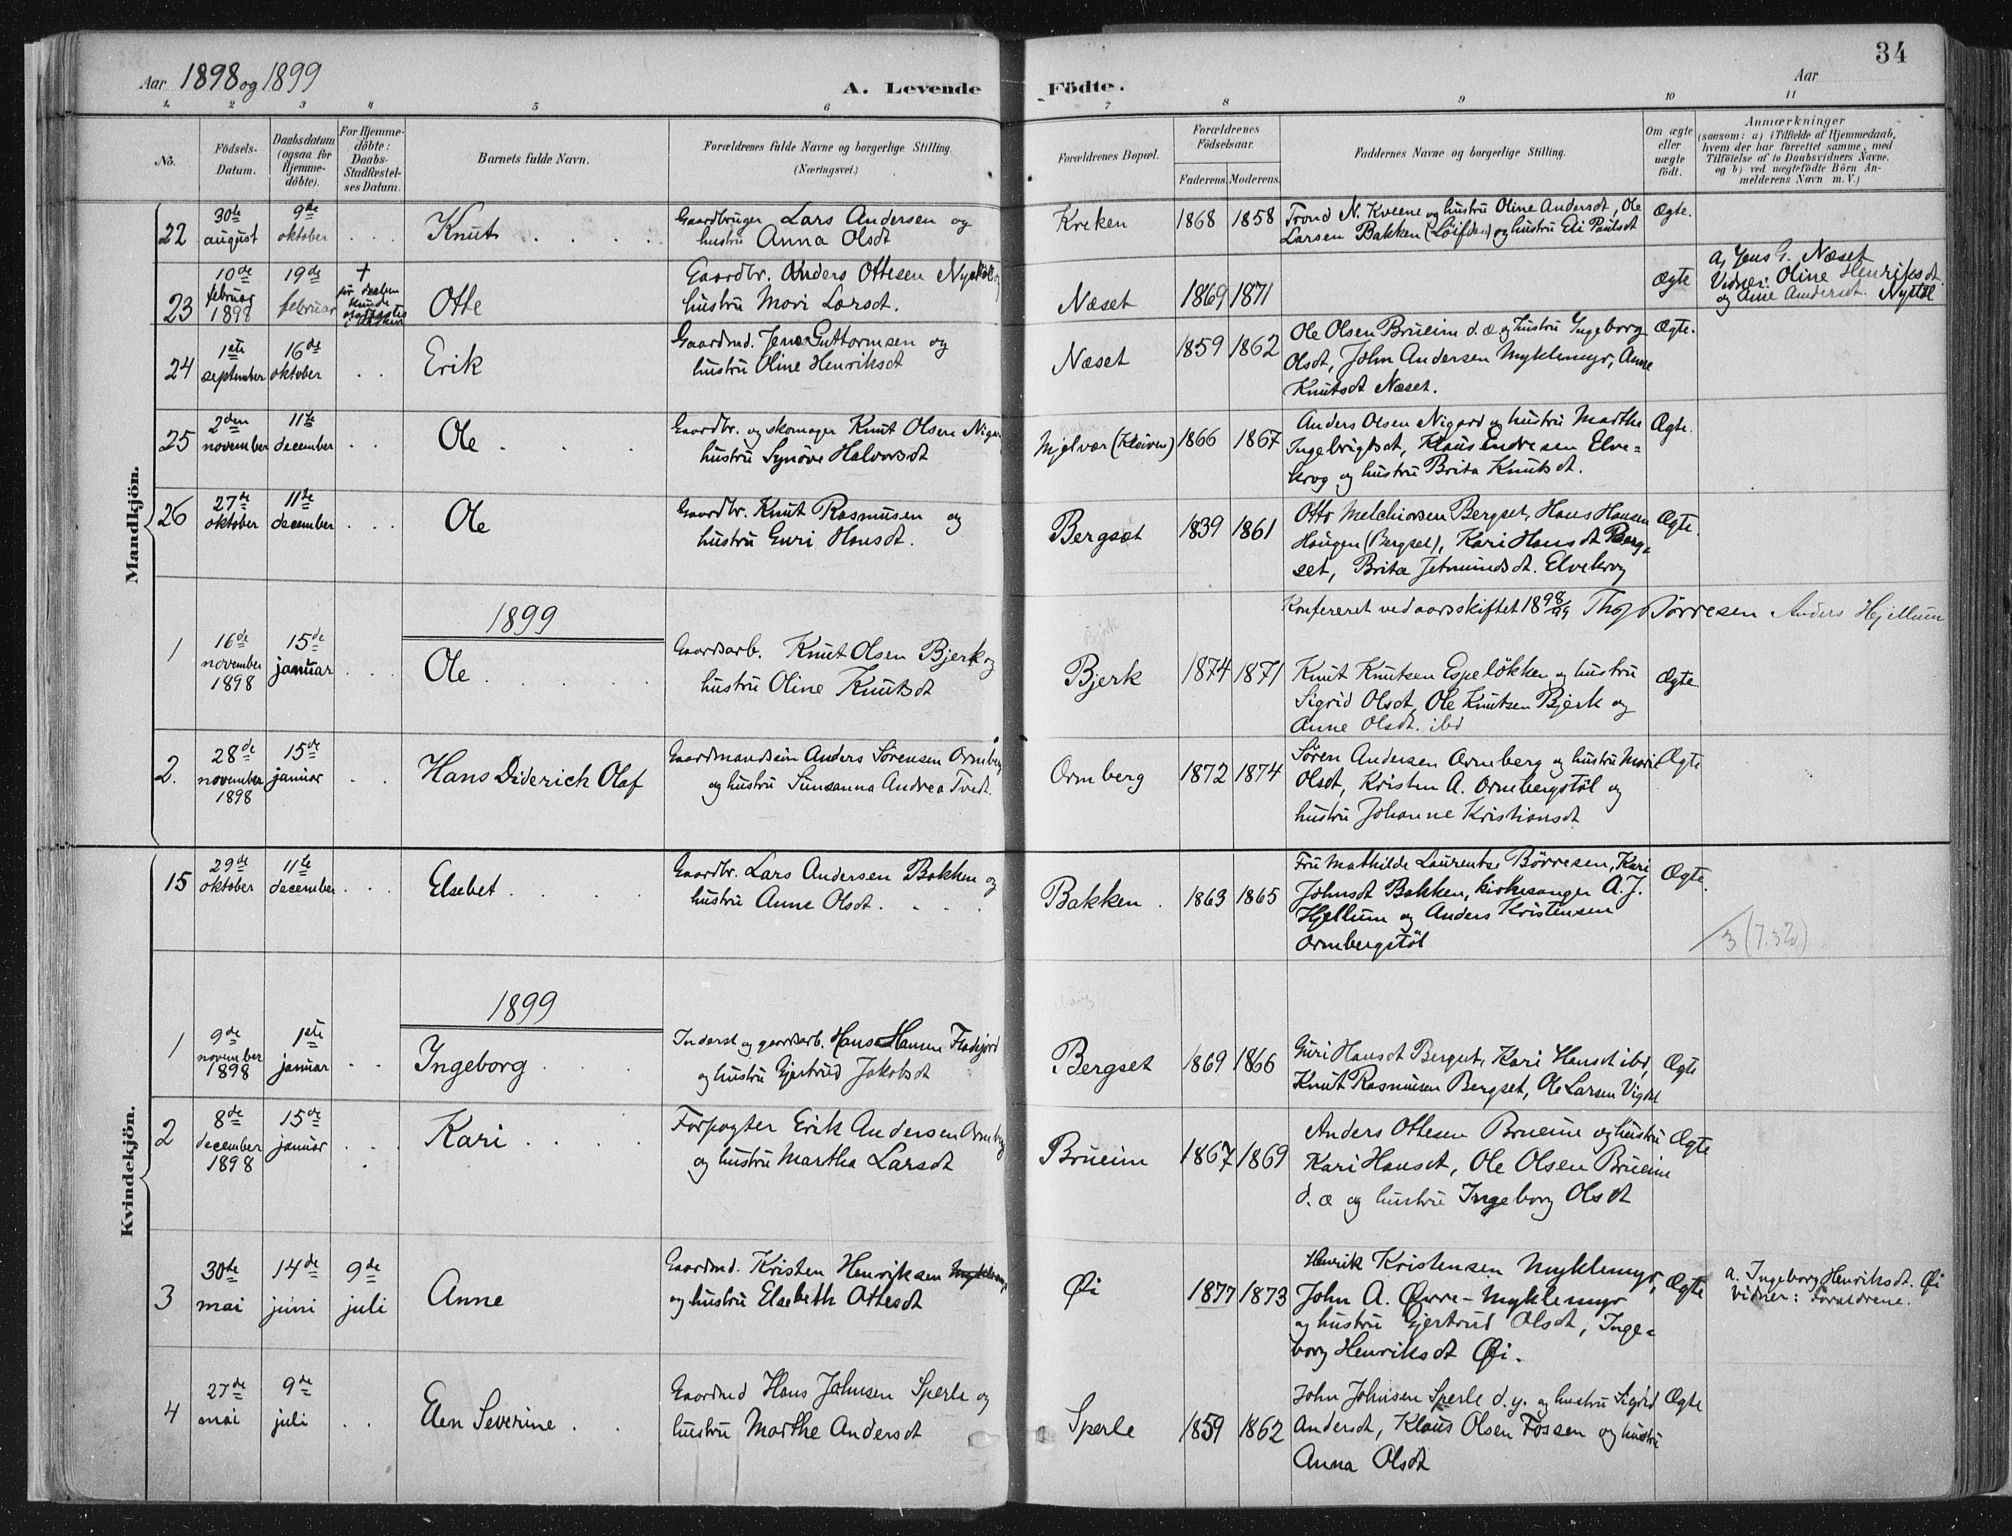 Aar 1898 og 1899
A. Levende Födte.
Aar
34
1. 2 3 4 5 6 7 8 9 10 11
No.
Födsels-Datum.
Daabsdatum (ogsaa for Hjemme-döbte).
For Hjemme-döbte: Daabs-Stadfæstel-ses Datum.
Barnets fulde Navn.
Forældrenes fulde Navne og borgerlige Stilling. (Næringsvei.)
Forældrenes Bopæl.
Forældrenes Födselsaar.
Faderens. Moderens.
Faddernes Navne og borgerlige Stilling.
Om ægte eller uægte födt.
Anmærkninger
(saasom: a) i Tilfælde af Hjemmedaab, hvem der har forrettet samme, med Tilföielse af to Daabsvidners Navne, og b) ved uægtefödte Börn An-melderens Navn m. V.)
Mandkjön.
22 30te august 9de oktober . . . Knut . . . .
Gaardbruger Lars Andersen og
hustru Anna Olsdt
Kreken 1868 1858
Trond N. Kveene og hustru Oline Andersdt, Ole
Larsen Bakken og hustru Eli Paulsdt
Ægte.
23 10de februar 1898 19de februar
+
Otte
Gaardbr. Anders Ottesen
hustru Mari Larsdt.
Næset 1869 1871
Ægte
a, Jens G. Næset
Vidner: Oline Henriksdt
og Ane Andersdt. Nystøl
24 1ste september 16de oktober . . Erik
Gaardmd. Jens Guttormsen og
hustru Oline Henriksdt
Næset 1859 1862
Ole Olsen Brueim d. æ og hustru Ingeborg
Olsdt, John Andersen Myklemyr, Anne
Knutsdt Næset.
Ægte.
25 2den november 11te december . . Ole . . .
Gaardbr. og skomager Knut Olsen
hustru Synøve Halvorsdt
Mjelvær (Kleiven) 1866 1867
Anders Olsen Nigard og hustru Marthe
Ingebrigtsdt, Klaus Endresen Elve-
krog og hustru Brita Knutsdt.
Ægte.
26 27de oktober 11te december . . . Ole
Gaardbr. Knut Rasmusen og
hustru Guri Hansdt.
Bergset 1839 1861
Otto Melchiorsen Bergset, Hans Hansen
Haugen (Bergset), Kari Hansdt Berg-
set, Brita Jetmundsdt. Elvekrog
Ægte.
Konfereret ved aarsskiftet 1898/99 Thos Börresen Anders Hjellum
1899
1 16de november 1898 15de januar . . . Ole . . . .
Gaardsarb. Knut Olsen Bjerk og
hustru Oline Knutsdt
Bjerk
Bjerk 1874 1871
Knut Knutsen Espeløkken og hustru
Sigrid Olsdt, Ole Knutsen Bjerk og
Anne Olsdt. ibd
Ægte
2. 28de november 1898 15de januar . . Hans Diderich Olaf
Gaardmandsøn Anders Sørensen Ormberg
og hustru Sunsanna Andrea Tvedt.
Ormberg 1872 1874
Søren Andersen Ormberg og hustru Mari
Olsdt, Kristen A. Ormbergstøl og
hustru Johanne Kristiansdt
Ægte
Kvindekjön.
15 29de oktober 11te december . . . Elsebet . . .
Gaardbr. Lars Andersen Bakken og
hustru Anne Olsdt. . . .
Bakken . 1863 1865
Fru Mathilde Laurentze Börresen, Kari
Johnsdt Bakken, kirkesanger A. J.
Hjellum og Anders Kristensen
Ormbergstøl
Ægte.
3 (7.320)
1899
1 9de november 1898 1ste januar . . Ingeborg . . .
Inderst og gaardsarb. Hans Hansen
og hustru Gjertrud Jakobsdt
Bergset 1869 1866
Guri Hansdt Bergset, Kari Hansdt ibd,
Knut Rasmusen Bergset, Ole Larsen Vigdal
Ægte
2 8de december 1898 15de januar . . . Kari . . . .
Forpagter Erik Andersen Ormberg
og hustru Martha Larsdt
Brueim 1867 1869
Anders Ottesen Brueim og hustru
Kari Hansdt, Ole Olsen Brueim
d. æ og hustru Ingeborg Olsdt
Ægte
3 30te mai 14de juni 9de juli Anne
Gaardmd. Kristen Henriksen
og hustru Elsebeth Ottesdt
Øi 1877 1873
Henrik Kristensen Myklemyr,
John A. Øvre-Myklemyr
og hustru Gjertrud Olsdt, Inge-
borg Henriksdt Øi.
Ægte
a. Ingeborg Henriksdt. Øi
vidner: Forældrene.
4 27de mai 9de juli . . Elen Severine . .
Gaardmd Hans Johnsen Sperle og
hustru Marthe Andersdt
Sperle 1859 1862
John Johnsen Sperle d. y. og hustru Sigrid
Andersdt, Klaus Olsen Fossen og hustru
Anna Olsdt
Ægte